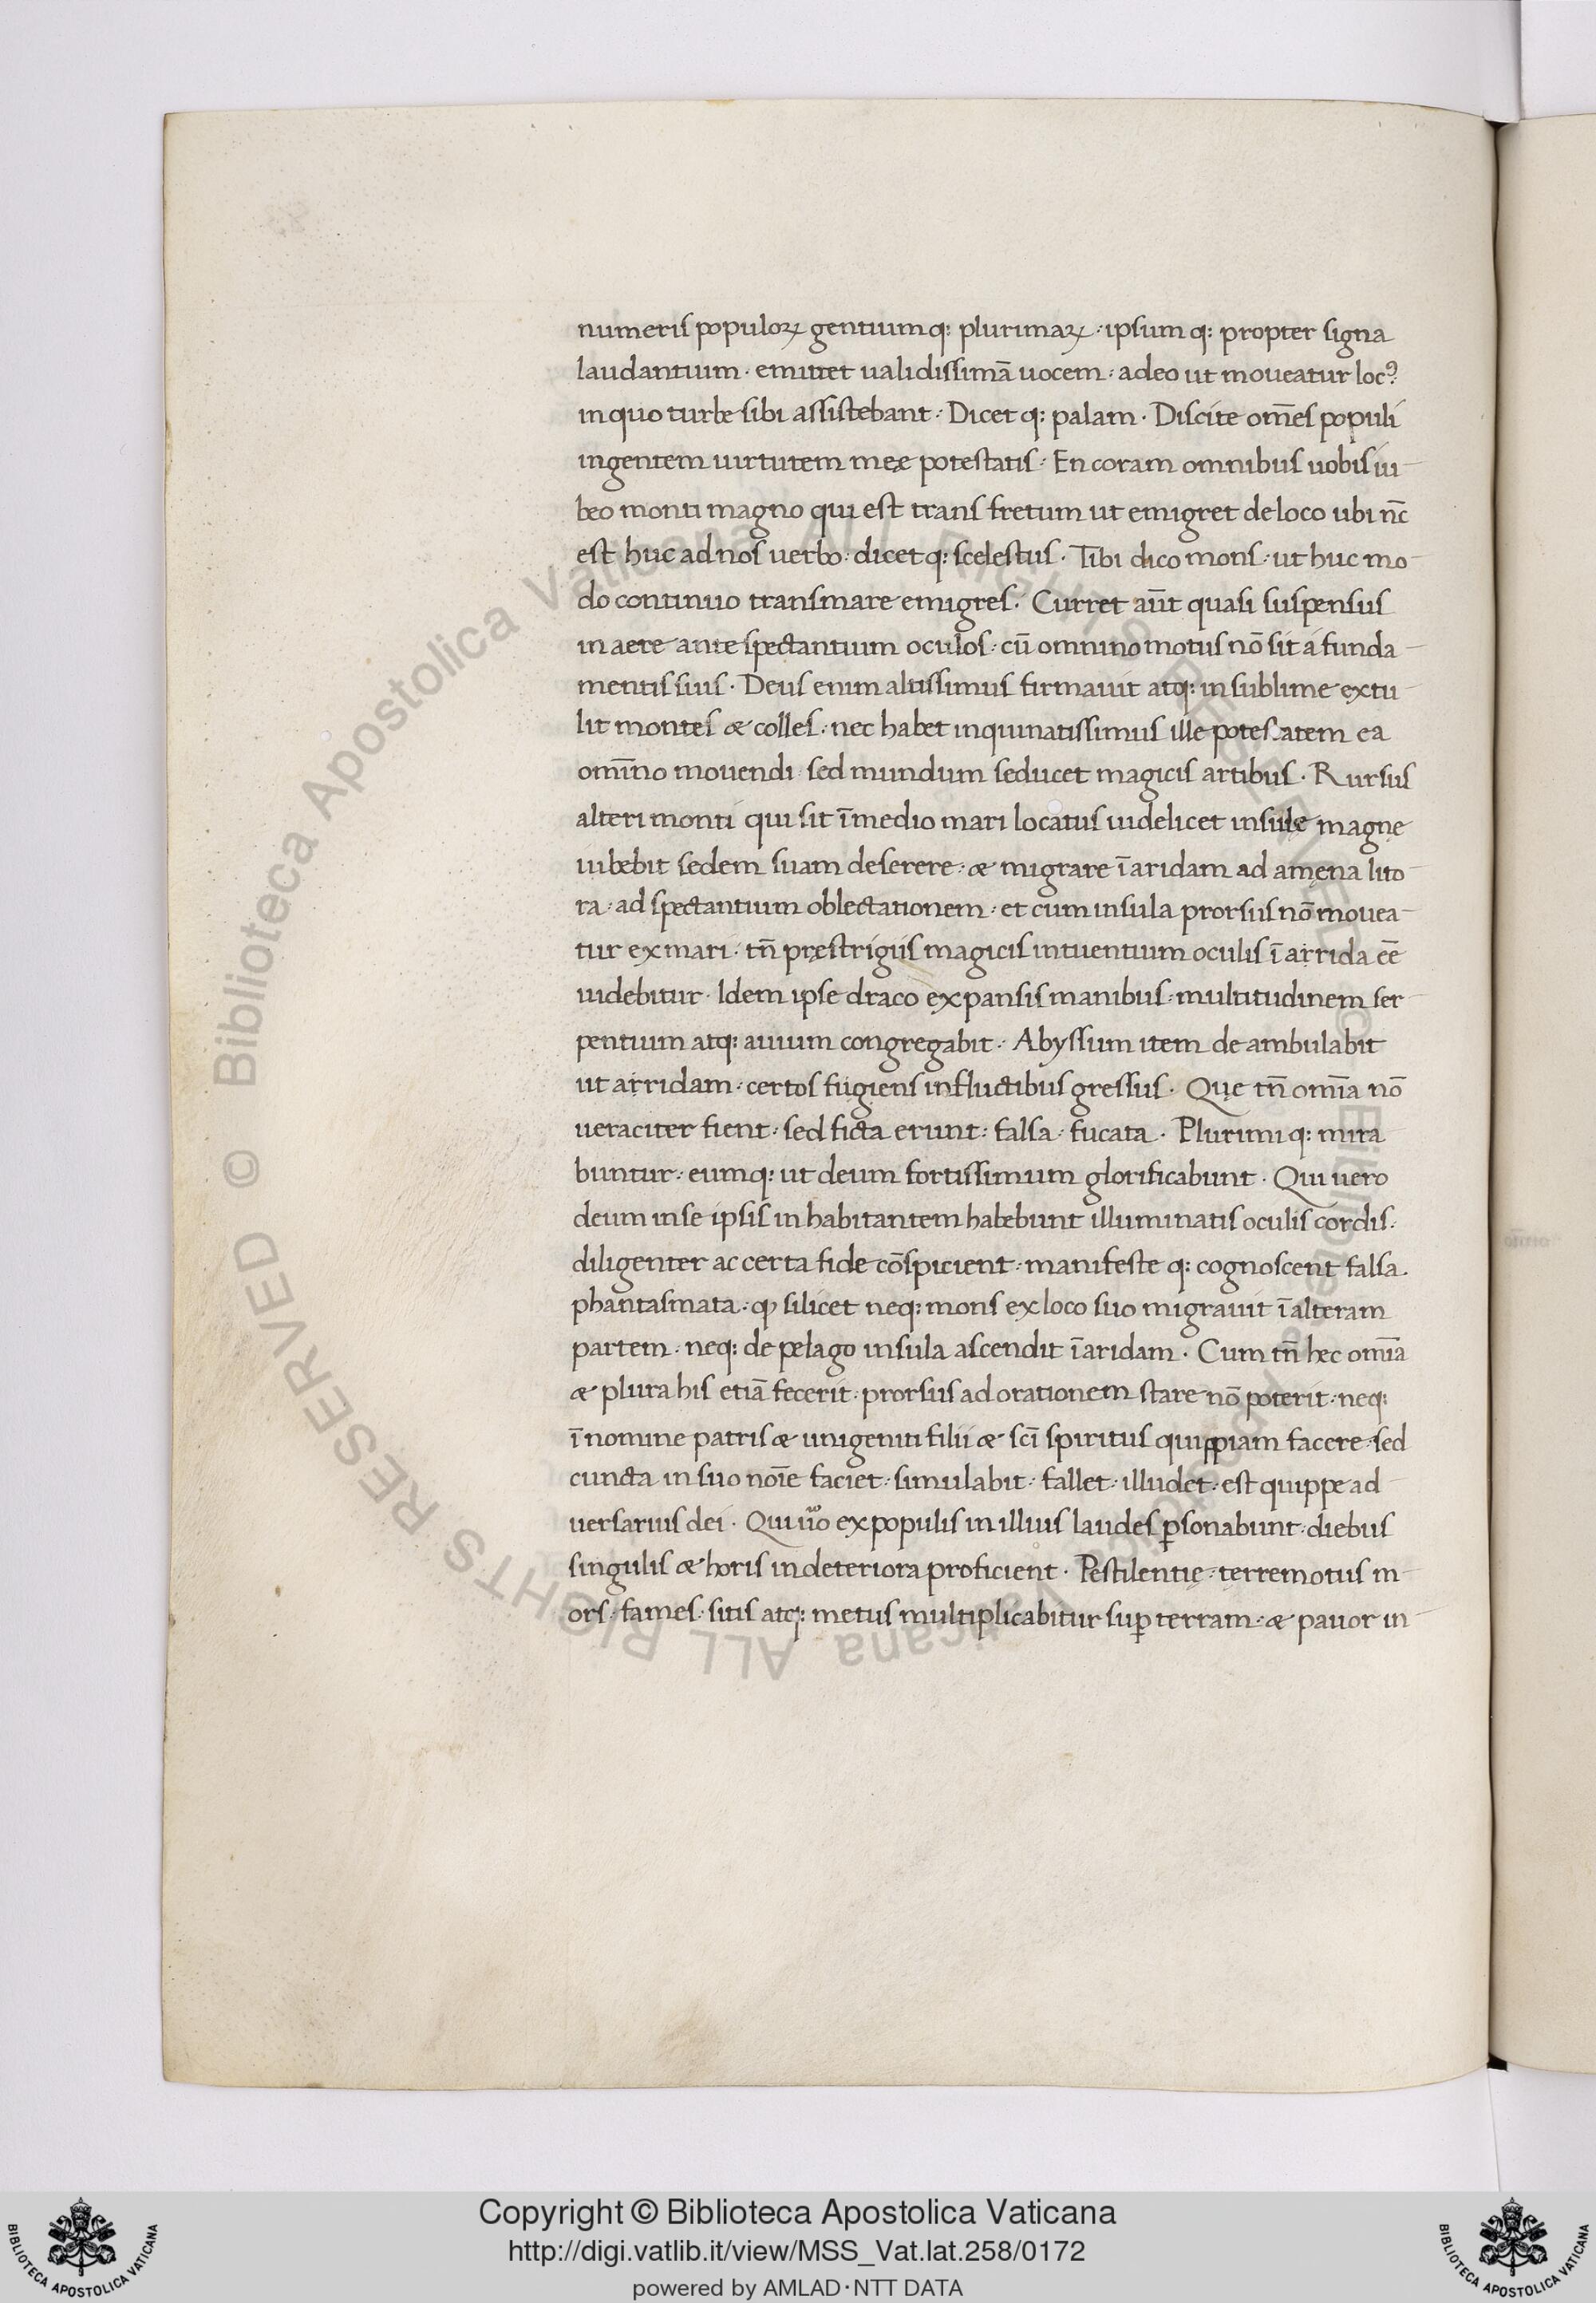 numeris populoꝝ gentium q: plurimaꝝ · ipsum q: propter signa
laudantium · emittet ualidissimā uocem · adeo ut moueatur locꝰ
in quo turbe sibi assistebant · Dicet q: palam · Discite om̄es populi
ingentem uirtutem meę potestatis · En coram omnibus uobis iu
beo monti magno qui est trans fretum ut emigret de loco ubi nc̄
est huc ad nos uerbo · dicet q: scelestus · Tibi dico mons · ut huc mo
do continuo transmare emigres · Curret aūt quasi suspensus
in aere ante spectantium oculos · cū omnino motus nō sit á funda
mentis suis · Deus enim altissimus firmauit atq: in sublime extu
lit montes & colles · nec habet inquinatissimus ille potestatem ea
omīno mouendi · sed mundum seducet magicis artibus · Rursus
alteri monti qui sit ī medio mari locatus uidelicet insulę magnę
iubebit sedem suam deserere · & migrare ī aridam ad amęna lito
ra · ad spectantium oblectationem · et cum insula prorsus nō mouea
tur ex mari · tn̄ pręstrigiis magicis intuentium oculis ī arrida eē
uidebitur · Idem ipse draco expansis manibus · multitudinem ser
pentium atq: auium congregabit · Abyssum item de ambulabit
ut arridam · certos fugiens in fluctibus gressus · Quę tn̄ omīa nō
ueraciter fient · sed ficta erunt · falsa · fucata · Plurimi q: mira
buntur · eumq: ut deum fortissimum glorificabunt · Qui uero
deum in se ipsis in habitantem habebunt illuminatis oculis cordis ·
diligenter ac certa fide cōspicient · manifeste q: cognoscent falsa
phantasmata · ꝙ silicet neq: mons ex loco suo migrauit ī alteram
partem · neq: de pelago insula ascendit ī aridam · Cum tn̄ hec omīa
& plura his etiā fecerit · prorsus ad orationem stare nō poterit · neq:
ī nomine patris & unigeniti filii & scī spiritus quippiam facere · sed
cuncta in suo noīe faciet · simulabit · fallet · illudet · est quippe ad
uersarius dei · Qui ūo ex populis in illius laudes ꝑsonabunt · diebus
singulis & horis in deteriora proficient · Pestilentię · terremotus m
ors · fames · sitis atq: metus multiplicabitur suꝑ terram · & pauor in
© Biblioteca Apostolica Vaticana ALL RIGHTS RESERVED © Biblioteca Apostolica Vaticana ALL RIGHTS RESERVED
Copyright © Biblioteca Apostolica Vaticana
http://digi.vatlib.it/view/MSS_Vat.lat.258/0172
powered by AMLAD·NTT DATA
BIBLIOTECA APOSTOLICA VATICANA
BIBLIOTECA APOSTOLICA VATICANA